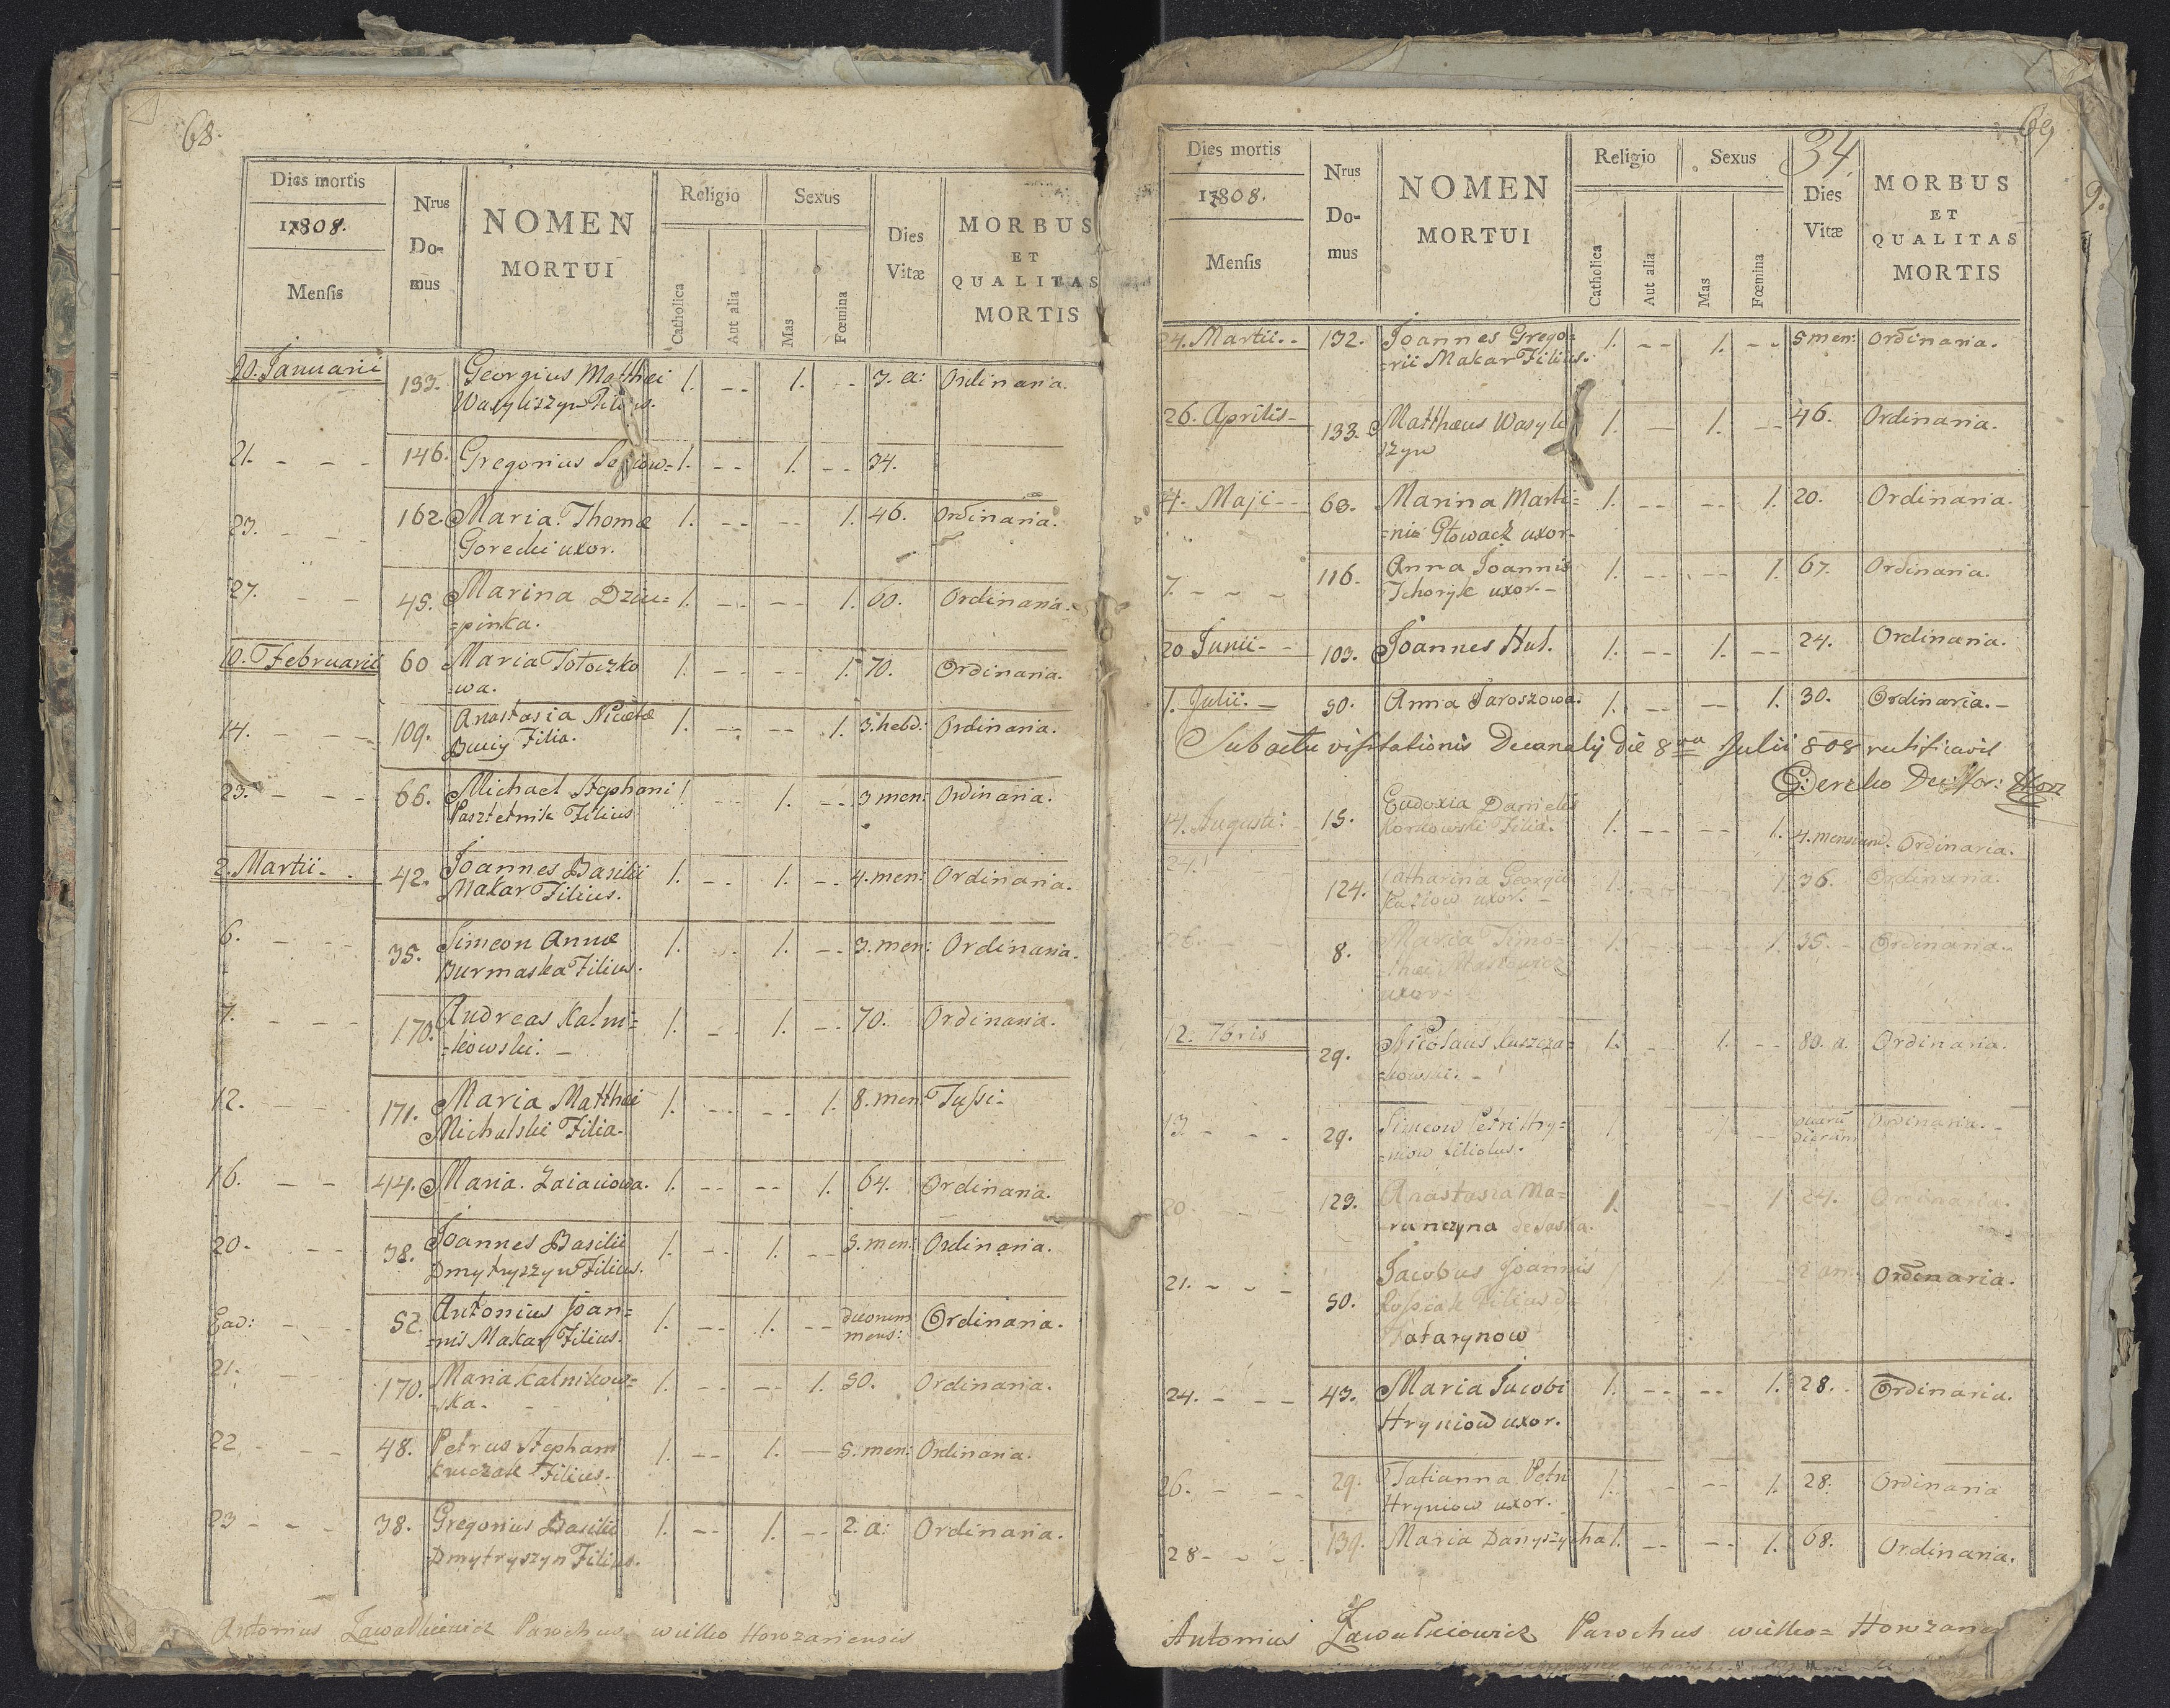 68.
Dies mortis
17808.
Mensis
Nrus
Do-
mus
NOMEN
MORTUI
Religio
Catholica
Aut alia
Sexus
Mas
Fœmina
Dies
Vitæ
MORBUS
ET
QUALITAS
MORTIS
20. Januarii 133. Georgius Matthæi 1. -- 1. -- 3. a: Ordinaria.
Wasyliszyn Filius.
21. - - - 146. Gregorius 1. -- 1. -- 34.
23. - - - 162. Maria Thomæ 1. -- -- 1. 46. Ordinaria.
Gorecki uxor.
27. - - 45. Marina Dziu= 1. -- -- 1. 60. Ordinaria.
=pinka.
10. Februarii 60 Maria Totoczko 1. -- -- 1. 70. Ordinaria.
=wa.
14. - - - 109. Anastasia Nicetæ 1. -- -- 1. 3. hebd: Ordinaria.
Filia.
23. - - - 66. Michael Stephani 1. -- 1. -- 3 men: Ordinaria.
Pasztetnik Filius
2. Martii - - 42. Joannes Basilii 1. -- 1. -- 4. men: Ordinaria.
Makar Filius.
6. - - - 35. Simeon Annæ 1. -- 1. -- 3. men: Ordinaria.
Burmaska Filius.
7. - - - 170. Andreas Kalni= 1. -- 1. -- 70. Ordinaria.
=kowski. -
12. - - 171. Maria Matthæi 1. -- -- 1. 8. men: Tussi-
Michalski Filia.
16. - - 44. Maria Zaiacowa. 1. -- -- 1. 64. Ordinaria.
20. - - 38. Joannes Basilii 1. -- 1. -- 3. men: Ordinaria.
Dmytryszyn Filius.
Ead: - - 52. Antonius Joan= 1. -- 1. -- duorum Ordinaria.
=nis Makar Filius. mens:
21. - - 170. Maria Kalnikow= 1. -- -- 1. 50. Ordinaria.
=ska.
22 - - - 48. Petrus Stephani 1. -- 1. -- 5. men: Ordinaria.
Kruczak Filius.
23 - - - 38. Gregorius Basilii 1. -- 1. -- 2. a: Ordinaria.
Dmytryszyn Filius.
Antonius Parochus
69
34
9.
Dies mortis
17808.
Mensis
Nrus
Do-
mus
NOMEN
MORTUI
Religio
Catholica
Aut alia
Sexus
Mas
Fœmina
Dies
Vitæ
MORBUS
ET
QUALITAS
MORTIS
24. Martii. - 132. Joannes Grego= 1. -- 1. -- 5 men: Ordinaria.
=rii Makar Filius.
26. Aprilis - 133. Matthæus Wasyli 1. -- 1. -- 46. Ordinaria.
szyn
4. Maji -- 63. Marina Marti= 1. -- -- 1. 20. Ordinaria.
=nis Głowacz uxor.
7. - - - 116. Anna Joannis 1. -- -- 1. 67. Ordinaria.
Tchoryk uxor. -
20 Junii - - 103. Joannes Hul. 1. -- 1. -- 24. Ordinaria.
1. Julii. - 50. Anna Jaroszowa. 1. -- -- 1. 30. Ordinaria. -
Sub actu visitationis Decanalis die 8va Julii 808 rectificavit
14. Augusti: 15. Eudoxia Danielis 1. -- -- 1. 4. mensium. Ordinaria.
Filia.
24. 124. Catharina Georgii 1. -- -- 1. 36. Ordinaria.
uxor. -
26. - - 8. Maria Timo= 1. -- -- 1. 35. - Ordinaria.
=thei
uxor -
12. 7bris 29. Nicolaus Kuszcza= 1. -- 1. -- 80. a. Ordinaria.
=kowski. -
13 - - - 29. Simeon Petri Hry= 1. 1. -- duarum Ordinaria. -
=niow filiolus. dierum
20 - - - 123. Anastasia Ma= 1. -- 1 24. Ordinaria.
=runczyna
21. - - - 50. Jacobus Joannis 1. 2 an: Ordinaria.
Filius de
Tatarynow
24. - - - 43. Maria Jacobi 1. -- -- 1. 28. Ordinaria.
Hryniow uxor.
26. - - - 29. Tatianna Petri 1. -- -- 1. 28. Ordinaria
Hryniow uxor.
28 - - - 139. Maria Danyszycha 1. -- -- 1. 68. Ordinaria.
Antonius Parochus